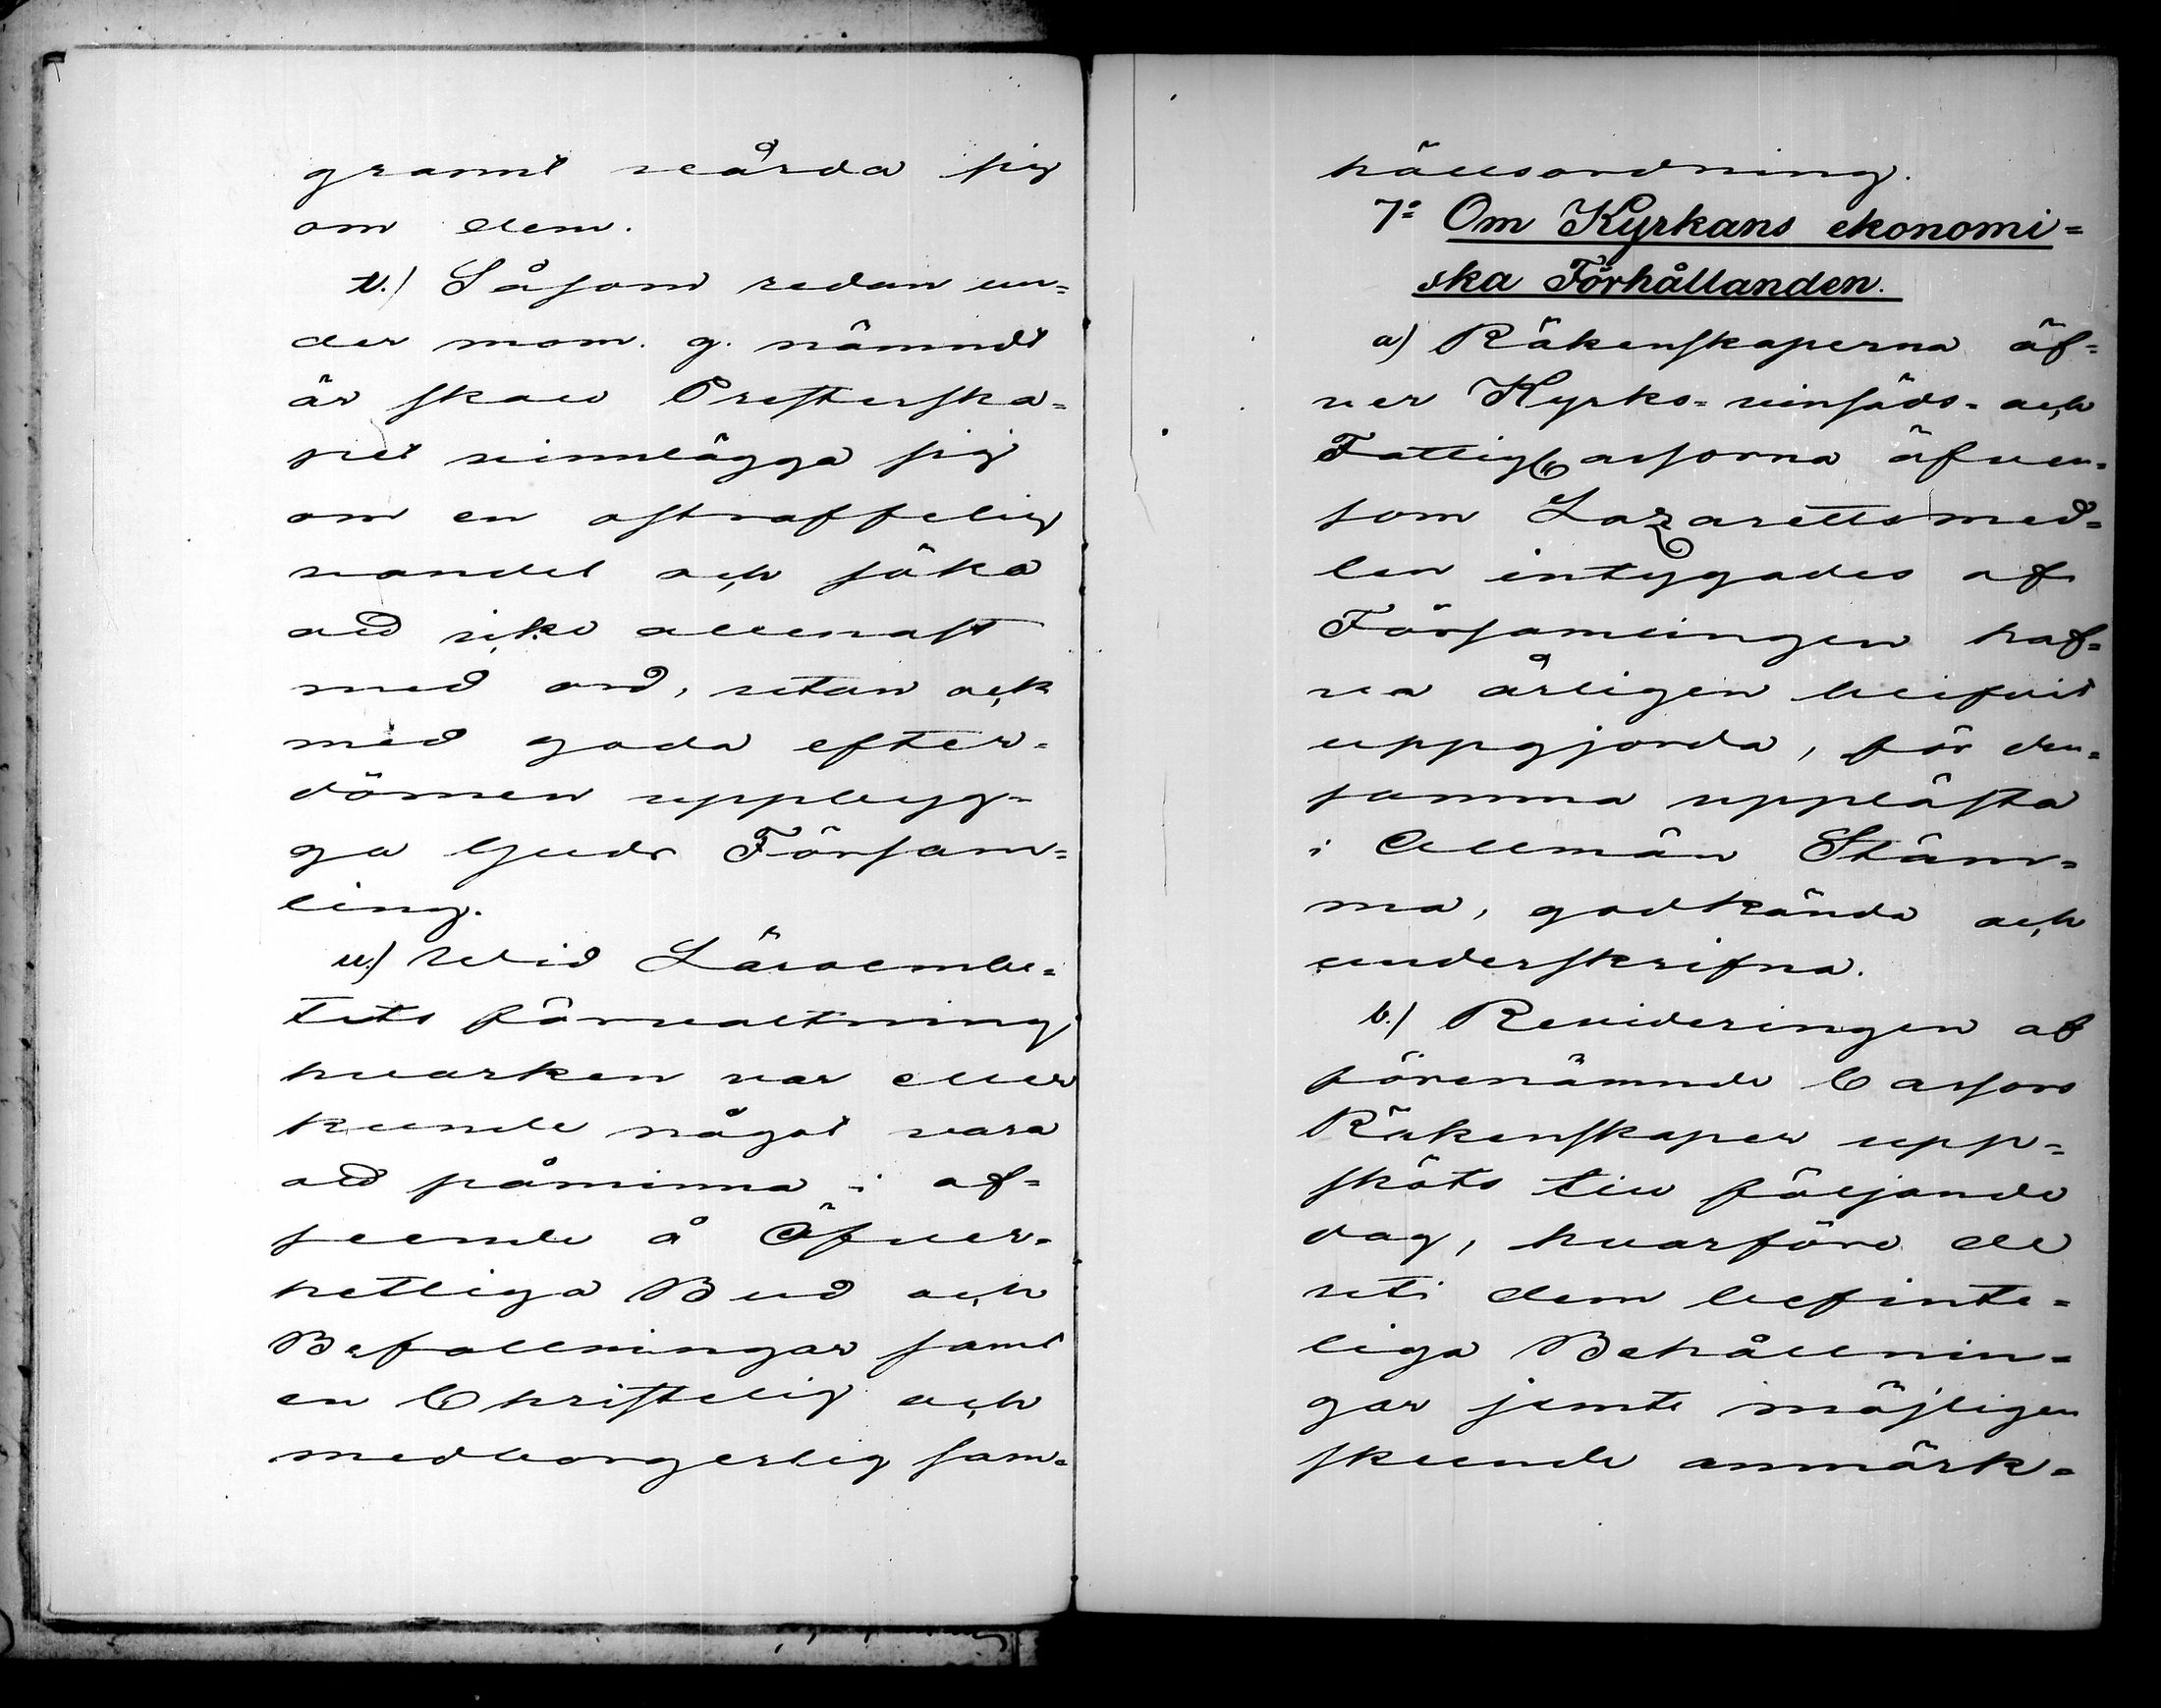 grannt vårda sig
om dem.
t.) Såsom redan un=
der mom. g. nämndt
är skall Presterska=
pet vinnlägga sig
om en ostraffelig
vandel och söka
att icke allenast
med ord, utan ock
med goda efter=
dömen uppbyg=
ga Guds Försam=
ling.
u.) Wid Läroembe=
tets förvaltning
hvarken var eller
kunde något vara
att påminna i af=
seende å Öfver=
hetliga Bud och
Befallningar samt
en Christelig och
medborgerlig sam=
hällsordning.
7:o Om Kyrkans ekonomi=
ska Förhållanden.
a) Räkenskaperna öf=
ver Kyrko= vinsäds= och
Fattig Cassorna äfven=
som Lazarettsmed=
len intygades af
Församlingen haf=
va årligen blifvit
uppgjorda, för den=
samma upplästa
i Allmän Stäm=
ma, godkända och
underskrifna.
b.) Revideringen af
förenämnde Cassors
Räkenskaper upp=
sköts till följande
dag, hvarföre de
uti dem befinte=
liga Behållnin=
gar jemte möjligen
skeende anmärk=